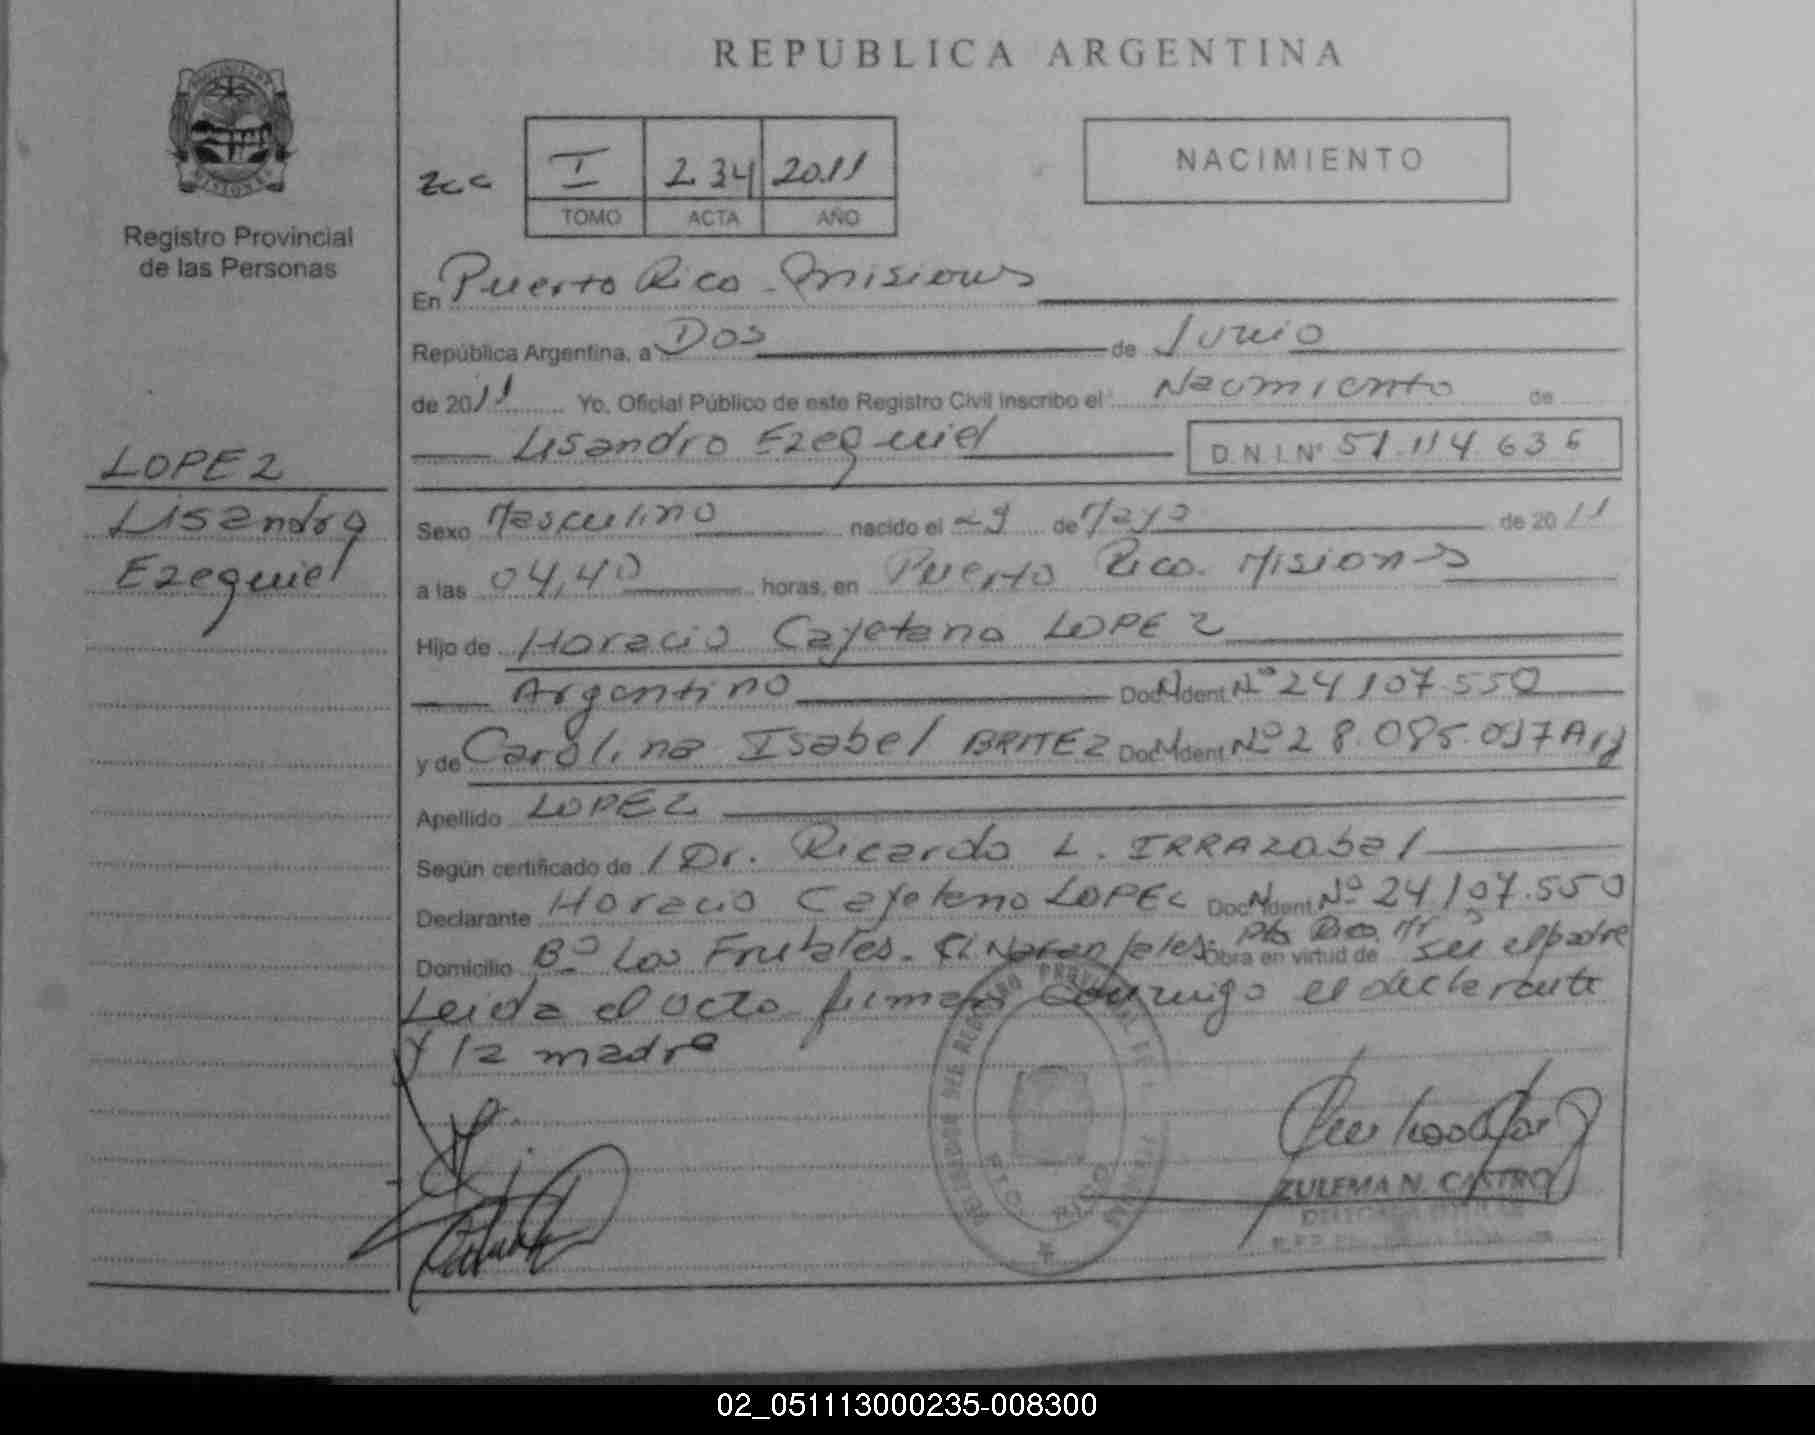 REPUBLICA ARGENTINA
MISIONES
Registro Provincial
de las Personas
I 234 2011
TOMO ACTA AÑO
NACIMIENTO
En Puerto Rico - Misiones
República Argentina, a Dos de Junio
de 2011 Yo, Oficial Público de este Registro Civil inscribo el Nacimiento de
Lisandro Ezequiel D.N.I.Nº 51.114.636
LOPEZ
Lisandro
Ezequiel
Sexo Masculino nacido el 29 de Mayo de 2011
a las 04,40 horas, en Puerto Rico. Misiones
Hijo de Horacio Cayetano LOPEZ
Argentino Doc. Ident. Nº 24.107.550
y de Carolina Isabel BRITEZ Doc. Ident. Nº 28.085.097 Arg
Apellido LOPEZ
Según certificado de / Dr. Ricardo L. IRRAZABAL
Declarante Horacio Cayetano LOPEZ Doc. Ident. Nº 24.107.550
Domicilio Bº Los Frutales - Pto Rico Obra en virtud de ser el padre
Leida el acta firman conmigo el declarante
y la madre
PTO. RICO
ZULEMA N. CASTRO
02_051113000235-008300